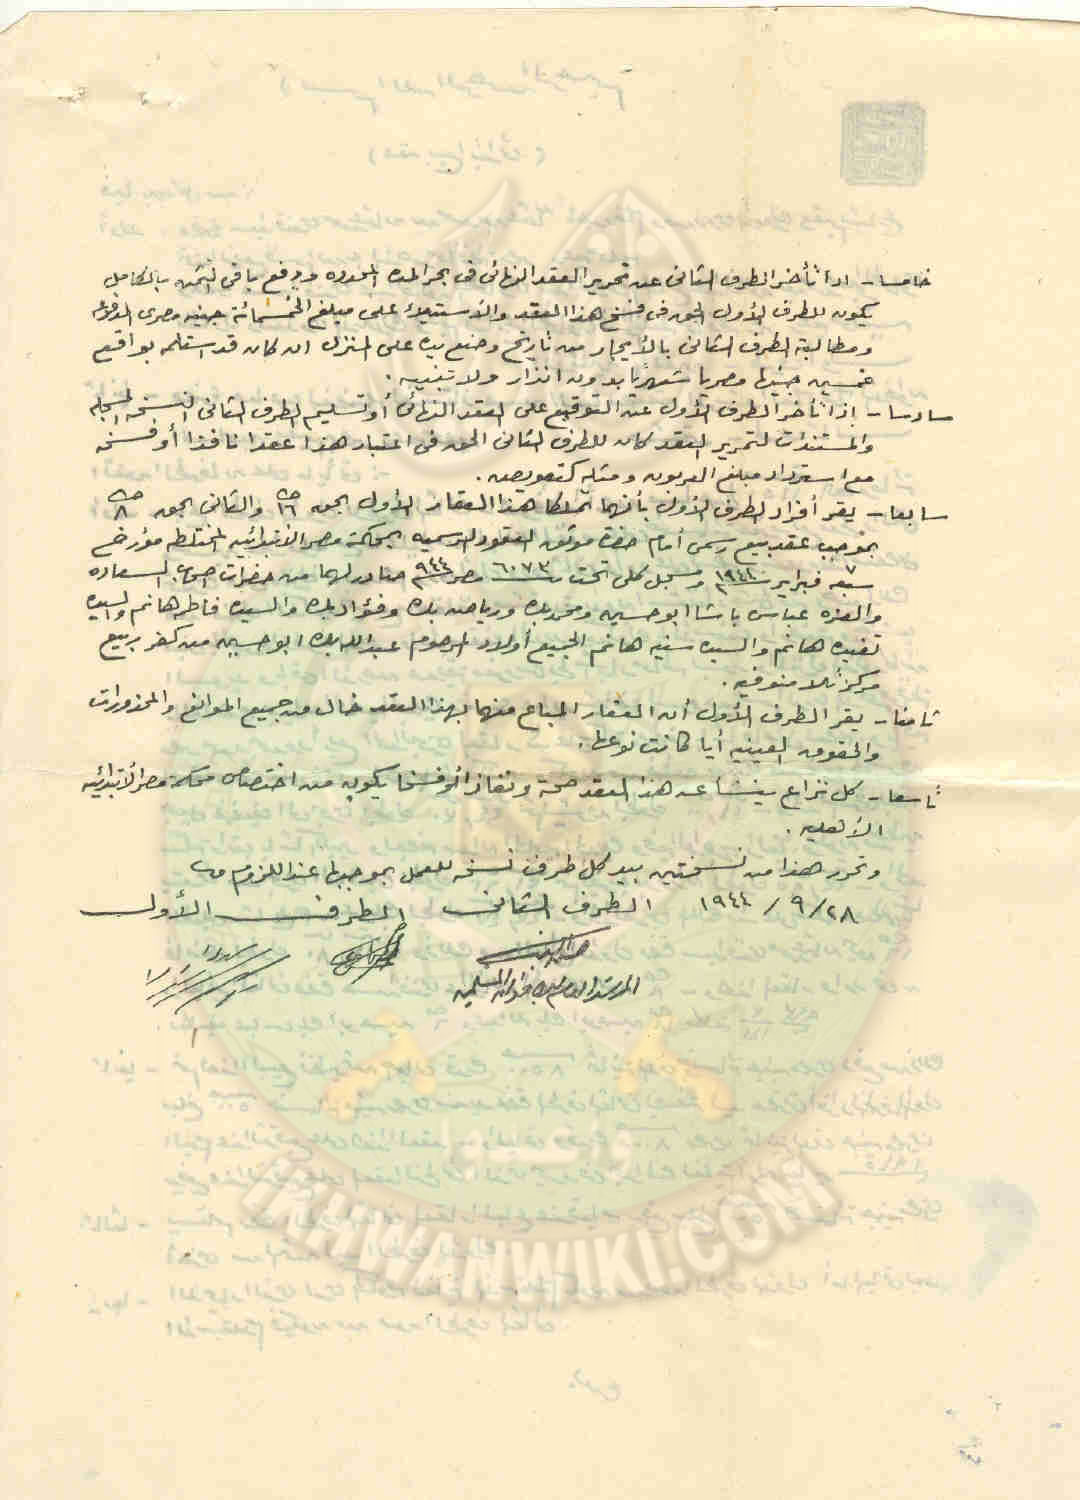 خامسا - اذا تأخر الطرف الثانى عن تحرير العقد النهائى فى بحر المده المحدده ودفع باقى الثمن بالكامل
يكون للطرف الأول الحق فى فسخ هذا العقد والاستيلاء على مبلغ الخمسمائة جنيه مصرى المدفوعه
ومطالبة الطرف الثانى بالأيجار من تاريخ وضع يده على المنزل ان كان قد استلمه بواقع
خمسين جنيها مصريا شهريا بدون انذار ولا تنبيه .
سادسا - اذا تأخر الطرف الأول عن التوقيع على العقد النهائى أو تسليم الطرف الثانى النسخه المسجله
والمستندات لتحرير العقد كان للطرف الثانى الحق فى اعتبار هذا عقدا نافذا أو فسخه
مع استرداد مبلغ العربون ومثله كتعويض .
سابعا - يقر أفراد الطرف الأول بأنهما تملكا هذا العقار الأول بحق ١٦ والثانى بحق ٨
بموجب عقد بيع رسمى أمام حضرة موثق العقود الرسميه بمحكمة مصر الأبتدائيه المختلطه مؤرخ
٧ سبعه فبراير سنة ١٩٤٤ ومسجل كلى تحت رقم ٦٠٧٣ مصر ٩٤٤ صادر لهما من حضرات اصحاب السعاده
والعزه عباس باشا ابو حسين ومحمد بك ورياض بك وفؤاد بك والسيده فاطمه هانم والسيده
تفيده هانم والسيده سنيه هانم الجميع أولاد المرحوم عبد الله بك ابو حسين من كفر ربيع
مركز تلا منوفيه .
ثامنا - يقر الطرف الأول أن العقار المباع منهما بهذا العقد خال من جميع الموانع والمحذورات
والحقوق العينيه أيا كانت نوعها .
تاسعا - كل نزاع ينشأ عن هذا العقد صحة ونفاذا أو فسخا يكون من اختصاص محكمة مصر الأبتدائيه
الأهليه .
وتحرر هذا من نسختين بيد كل طرف نسخه للعمل بموجبها عند اللزوم
٢٨ / ٩ / ١٩٤٤ الطرف الثانى الطرف الأول
المرشد العام للاخوان المسلمين
IKHWANWIKI.COM